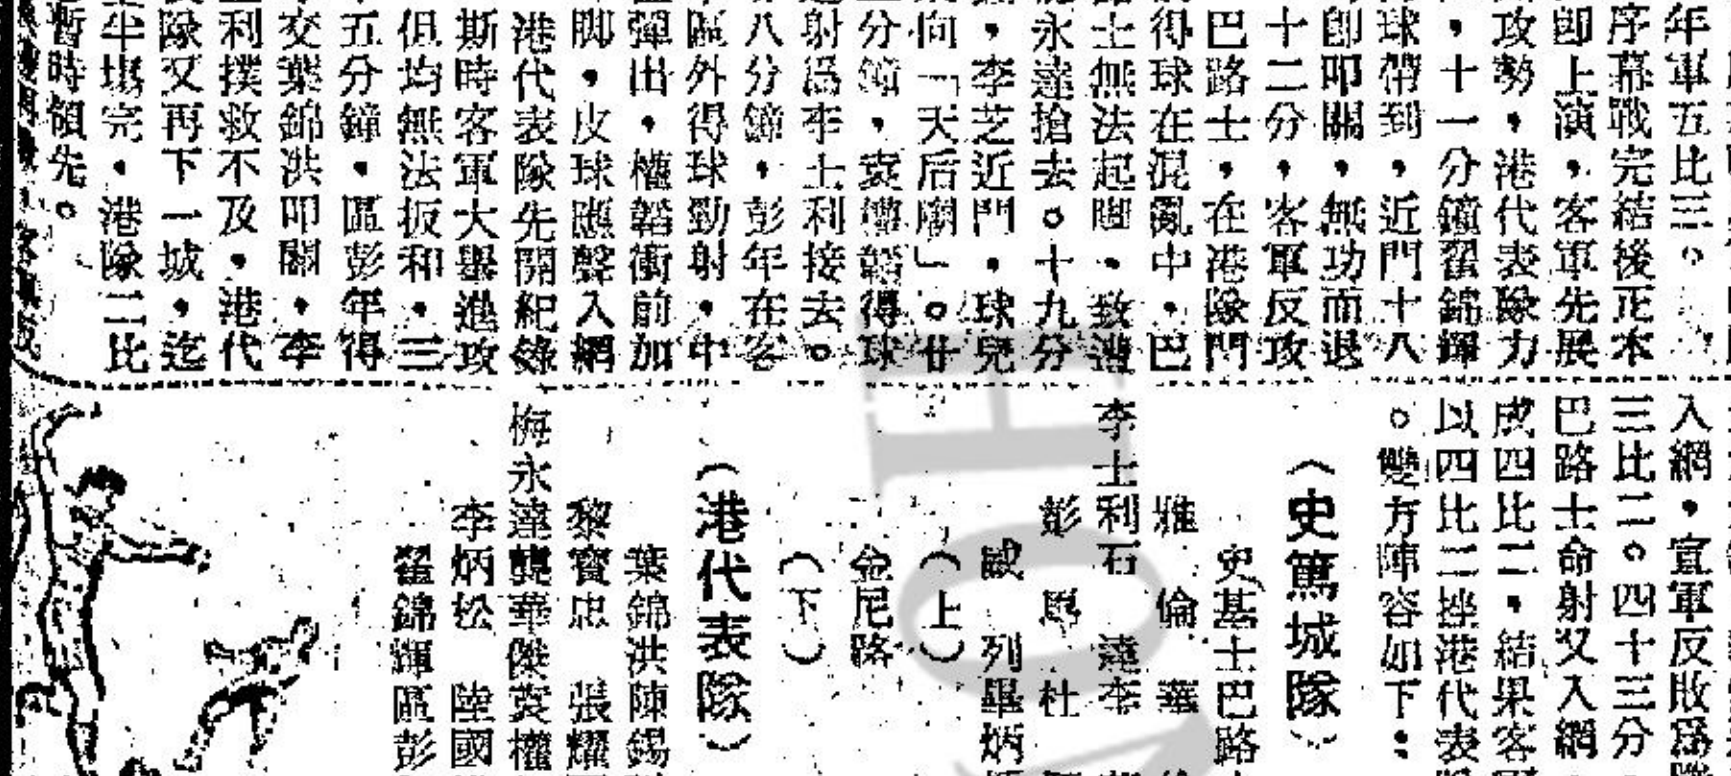 年軍五比三。
序幕戰完結後正本
即上演，客軍先展
攻勢，港代表隊力
，十一分鐘翟錦輝
球帶到，近門十八
即叩關，無功而退
十二分，客軍反攻
巴路士，在港隊門
得球在混亂中，巴
士無法起脚，致遭
永達搶去。十九分
，李芝近門，球兒
向「天后廟」。廿
分鐘，袁權韜得球
射爲李士利接去。
八分鐘，彭年在客
區外得球勁射，中
彈出，權韜衝前加
脚，皮球應聲入網
港代表隊先開紀錄
斯時客軍大舉進攻
但均無法扳和，三
五分鐘，區彭年得
交葉錦洪叩關，李
利撲救不及，港代
隊又再下一城，迄
半塲完，港隊二比
暫時領先。
入網，宜軍反敗爲勝
三比二。四十三分
巴路士命射又入網
成四比二，結果客
以四比二挫港代表
。雙方陣容如下：
（史篤城隊）
史基士巴路
雅倫華
李士利石達李
彭馬杜
威列畢炳
（上）
金尼路
（下）
（港代表隊）
葉錦洪陳錫
黎寶忠張耀
梅永達龔華傑袁權
李炳松陸國
翟錦輝區彭